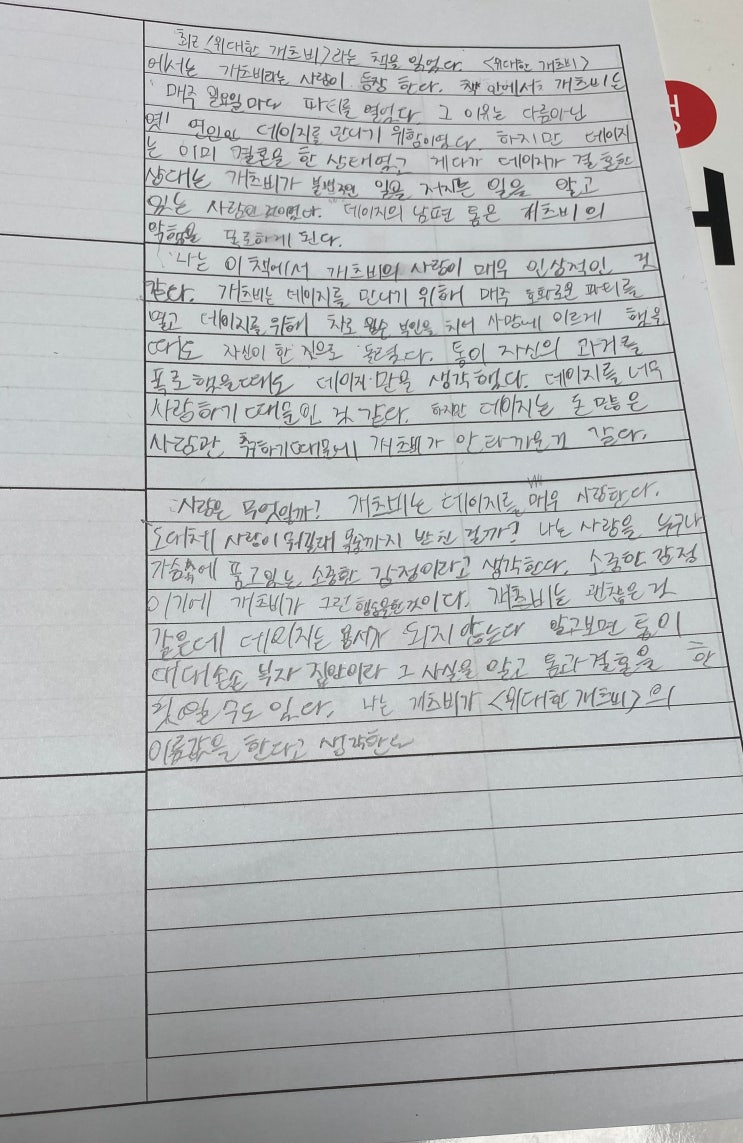 최근 <위대한 개츠비>라는 책을 읽었다. <위대한 개츠비>
에서는 개츠비라는 사람이 등장 한다. 책 안에서는 개츠비는
매주 일요일마다 파티를 열었다. 그 이유는 다름아닌
옛 연인인 데이지를 만나기 위함이였다. 하지만 데이지
는 이미 결혼을 한 상태였고 게다가 데이지가 결혼한
상대는 개츠비가 불법적인 일을 저지는 일을 알고
있는 사람인 데이지의 남편 톰은 개츠비의
악행을 폭로하게 된다.
나는 이 책에서 개츠비의 사랑이 매우 인상적인 것
같다. 개츠비는 데이지를 만나기 위해 매주 호화로운 파티를
열고 데이지를 위해 차로 부인을 치어 사망에 이르게 했을
때도 자신이 한 짓으로 돌렸다. 톰이 자신의 과거를
폭로했을때도 데이지 만을 생각했다. 데이지를 너무
사랑하기 때문인 것 같다. 하지만 데이지는 돈 많은
사람만 취하기때문에 개츠비가 안타까운거 같다.
사랑은 무엇일까? 개츠비는 데이지를 매우 사랑한다.
도대체 사랑이 뭐길래 까지 바친 걸까? 나는 사랑을 누구나
가슴속에 품고있는 소중한 감정이라고 생각한다. 소중한 감정
이기에 개츠비가 그런 행동을한것이다. 개츠비는 괜찮은것
같은데 데이지는 용서가 되지 않는다 알고보면 톰이
대대손손 부자 집안이라 그 사실을 알고 톰과 결혼을 한
것일 수도 있다. 나는 개츠비가 <위대한 개츠비>의
이름값을 한다고 생각한다